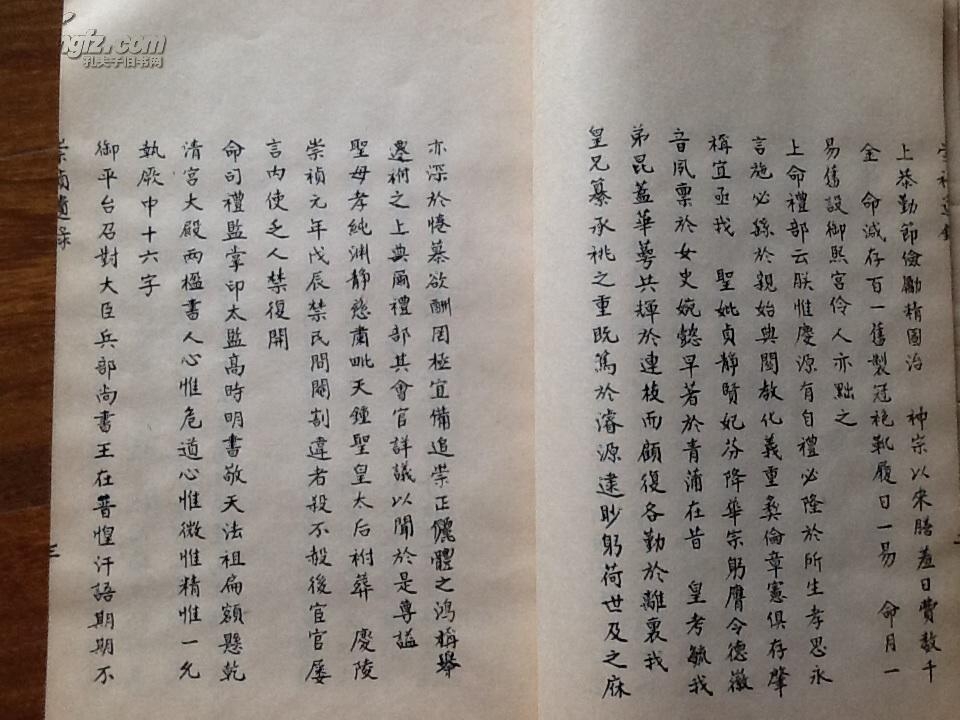 上恭勤節儉勵精圖治　神宗以來膳羞日費數千
金　命減存百一舊製冠袍靴履日一易　命月一
易舊設御熙宮伶人亦黜之
上命禮部云朕惟慶源有自禮必隆於所生孝思永
言施必繇於親始典閎教化義重彝倫章憲俱存肇
稱宜亟我　聖妣貞靜賢妃芬降華宗躬膺令德徽
音夙稟於女史婉懿早著於青蒲在昔　皇考毓我
弟昆蓋華萼共輝於連枝而顧復各勤於離裏我
皇兄纂承祧之重既篤於濬源逮眇躬荷世及之庥
亦深於惓慕欲酬罔極宜備追崇正儷體之鴻稱舉
遷祔之上典爾禮部其會官詳議以聞於是尊諡
聖母孝純淵靜慈肅毗天鍾聖皇太后祔葬　慶陵
崇禎元年戊辰禁民間閹割違者殺不赦後宦官屢
言內使乏人禁復開
命司禮監掌印太監高時明書敬天法祖扁額懸乾
清宮大殿兩楹書人心惟危道心惟微惟精惟一允
執厥中十六字
御平台召對大臣兵部尚書王在晉惶汗語期期不
崇禎遺錄
三
孔夫子旧书网